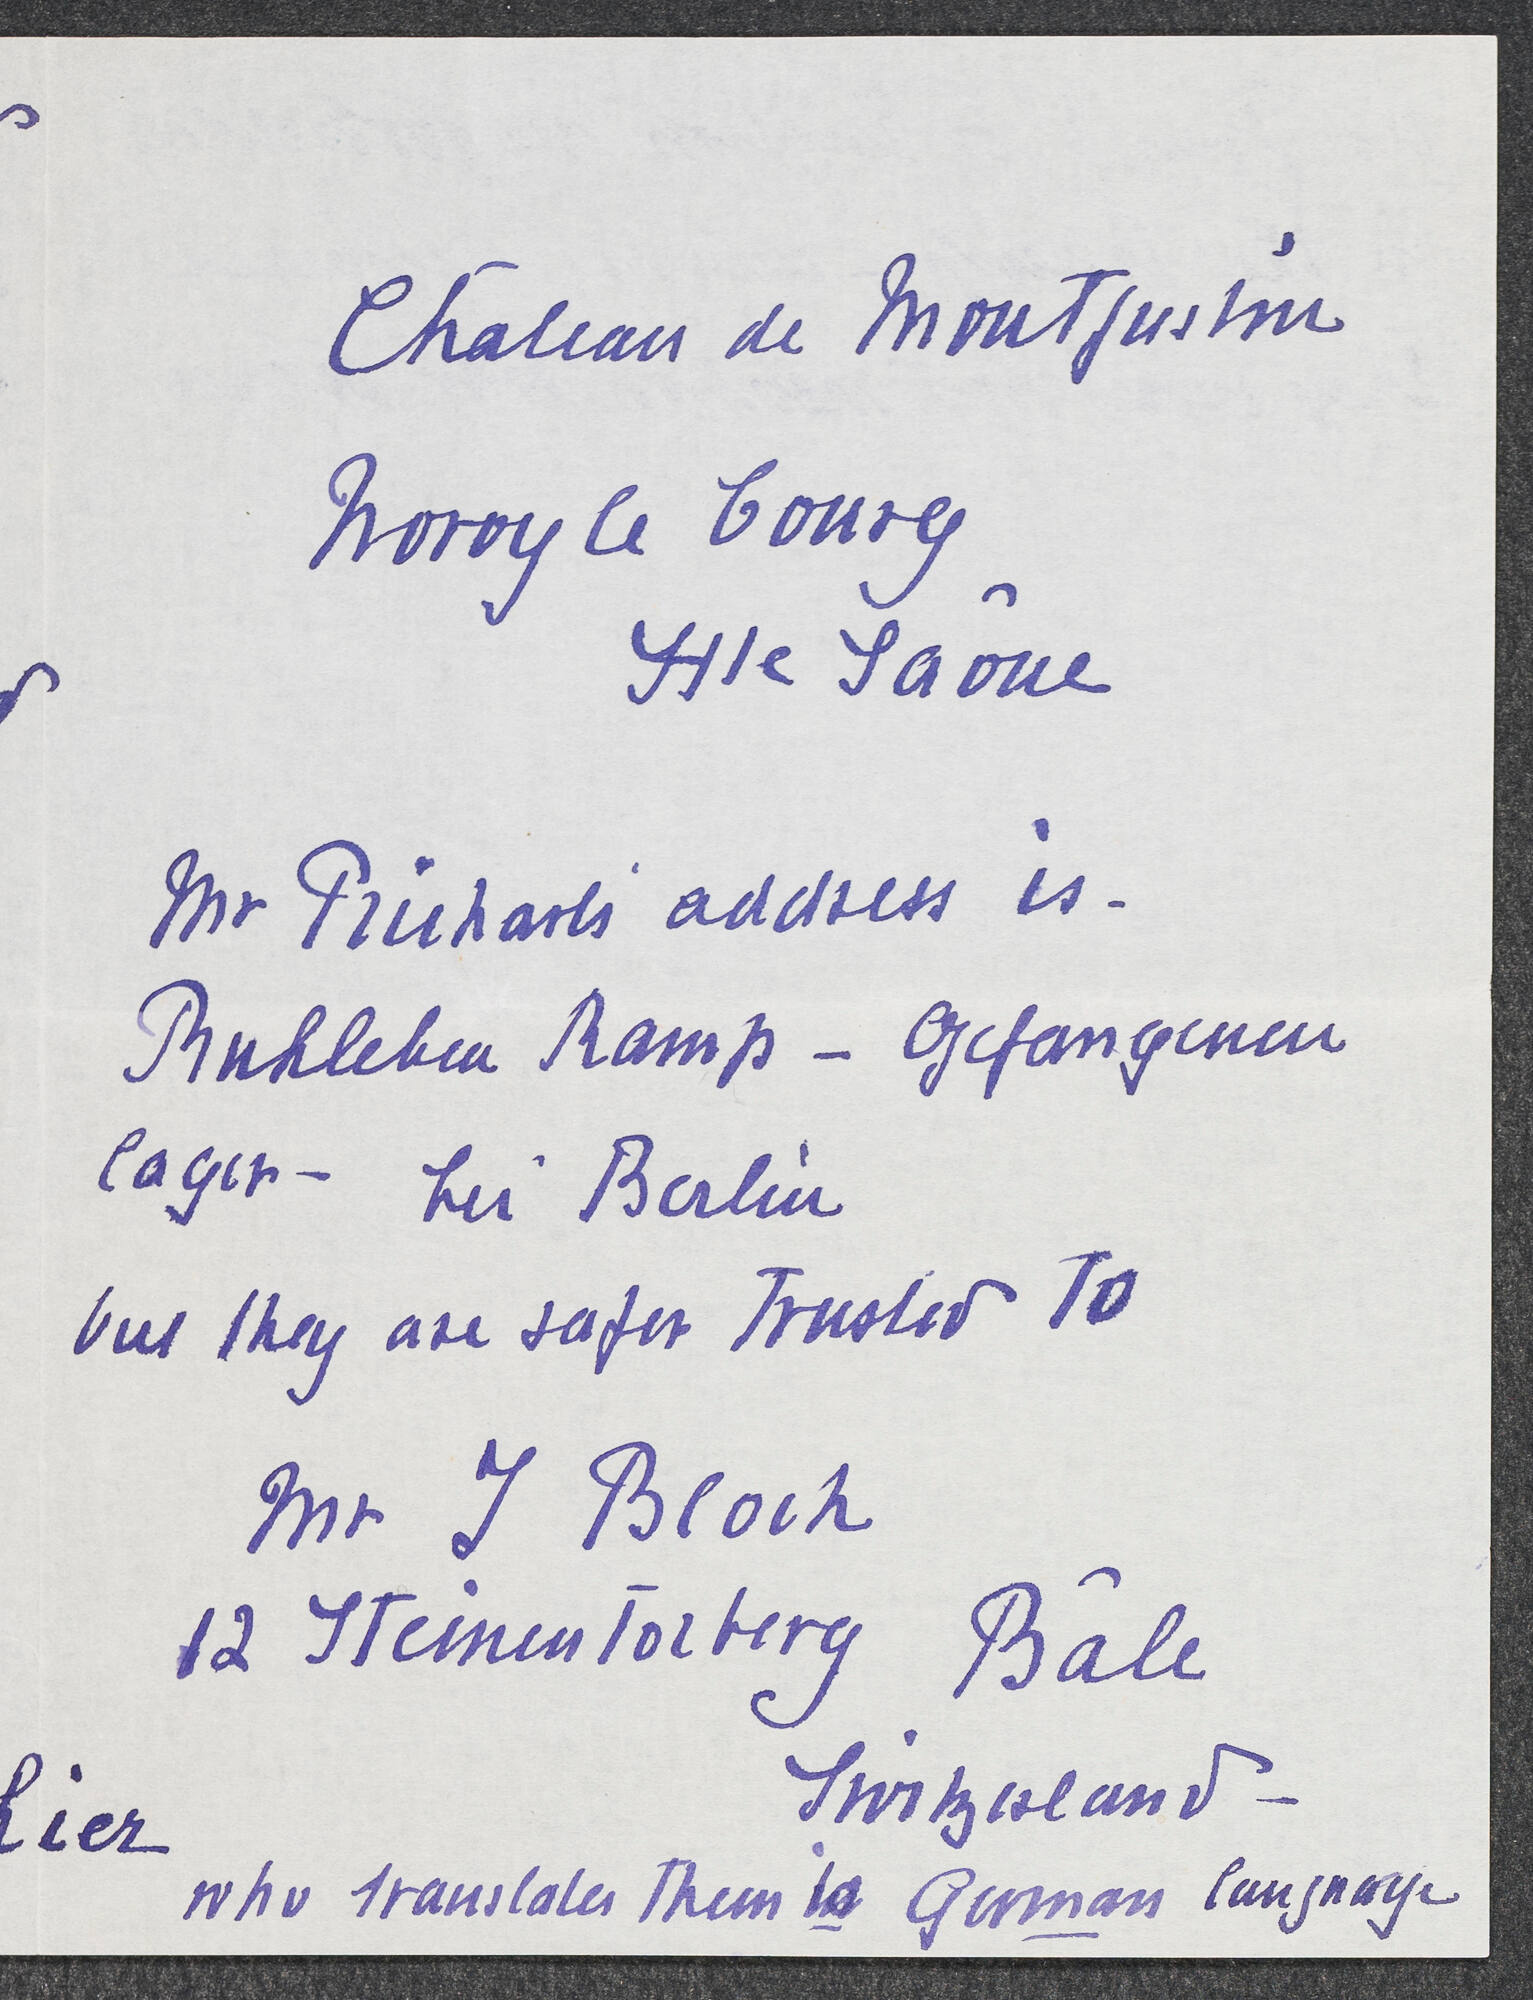 Château de Montjustin
Noroy le bourg
Hte Saône
Mr Prichard's address is -
Ruhleben Kamp - Gefangenen
lager - bei Berlin
but they are safer Trusted To
Mr J Bloch
12 Steinentorberg Bâle
Switzerland -
lier
who translates Them in German language